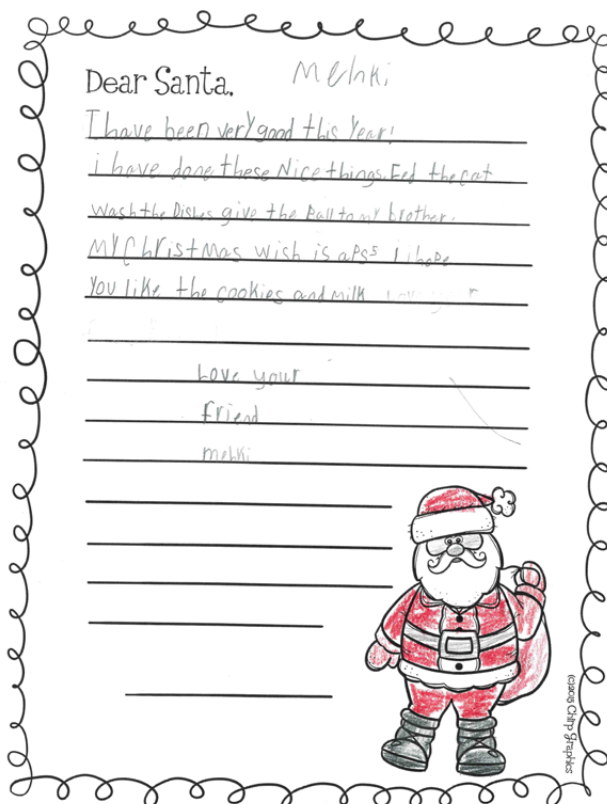 Mehki
Dear Santa,
I have been very good this Year!
i have done these Nice things. Fed the cat
Wash the Dishes give the Ball to my brother.
MY Christmas wish is a PS5 I hope
You like the cookies and milk
Love your
friend
mehki
(c)2015 Chirp Graphics